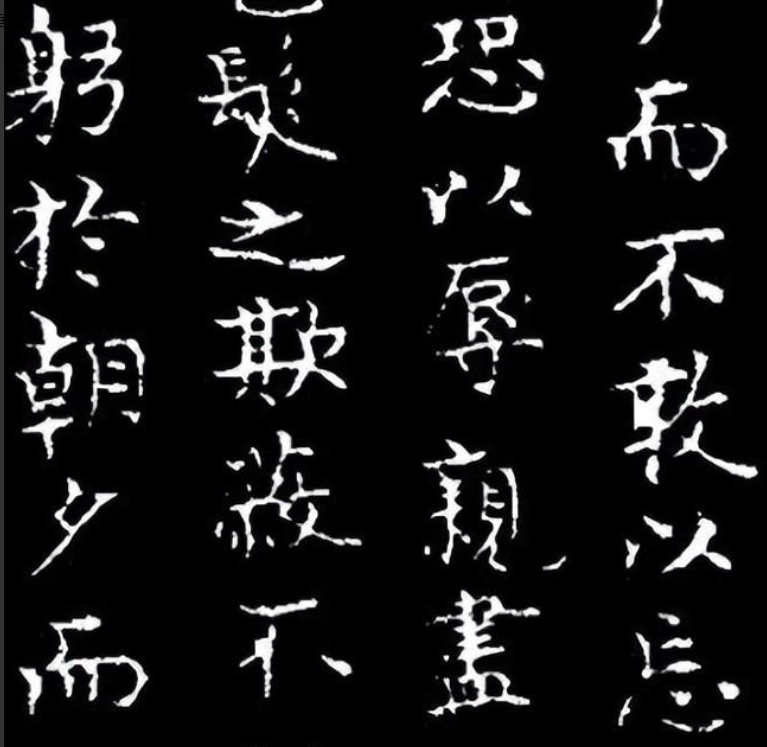 而不敢以忘
恐以辱親盡
髮之欺蔽不
躬於朝夕而